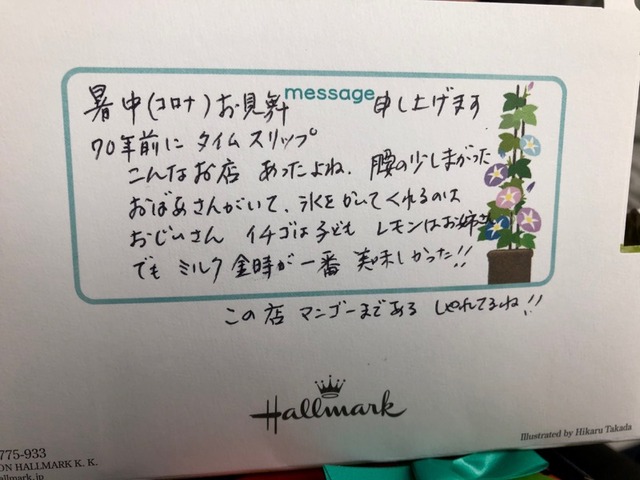 message
暑中(コロナ)お見舞 申し上げます
70年前に タイムスリップ
こんなお店 あったよね、腰の少しまがった
おばあさんがいて、氷をかいてくれるのは
おじいさん イチゴは子ども レモンはお姉さん
でも ミルク金時が一番 美味しかった!!
この店 マンゴーまである しゃれてるね!!
Hallmark
775-933
ON HALLMARK K. K.
allmark.jp
Illustrated by Hikaru Takada